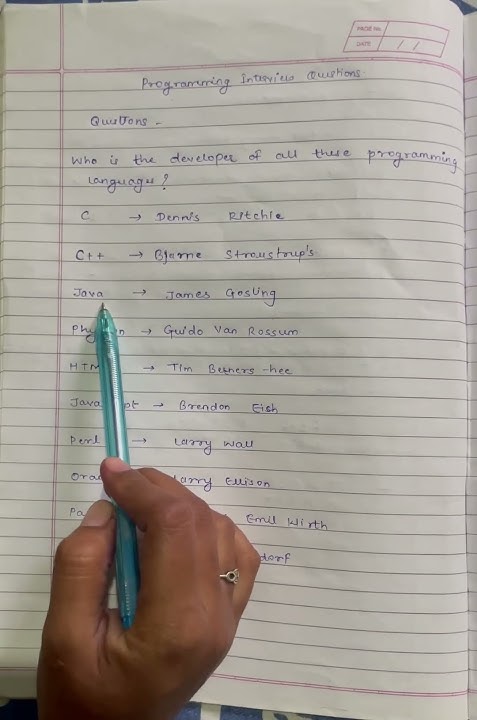 PAGE No.
DATE / /
Programming Interview Questions.
Questions -
Who is the developer of all these programming
languages?
C → Dennis Ritchie
C++ → Bjarne Straustrup's
Java → James Gosling
→ Guido Van Rossum
→ Tim Berners-lee
→ Brendon Eish
Perl → Larry Wall
Larry Ellison
Emil Wirth
dorf